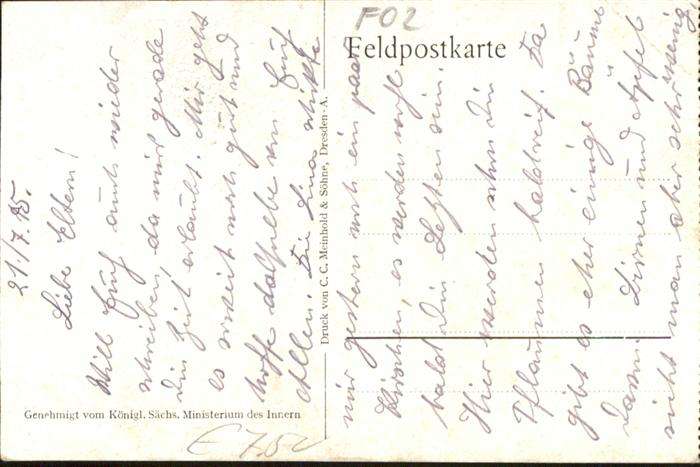 F02
Feldpostkarte
21./7.15.
Liebe Eltern!
Will Euch auch wieder
schreiben, da mir gerade
die Zeit erlaubt. Mir geht
es soweit noch gut und
hoffe dasselbe von Euch
Allen. Die Lina schickte
mir gestern noch ein paar
Kirschen, es werden wohl
bald die Letzten sein.
Hier werden schon die
Pflaumen bald reif. Da
gibt es aber einige Bäume
davon. Birnen und Äpfel
sieht man aber sehr wenig
Druck von C. C. Meinhold & Söhne, Dresden-A.
Genehmigt vom Königl. Sächs. Ministerium des Innern